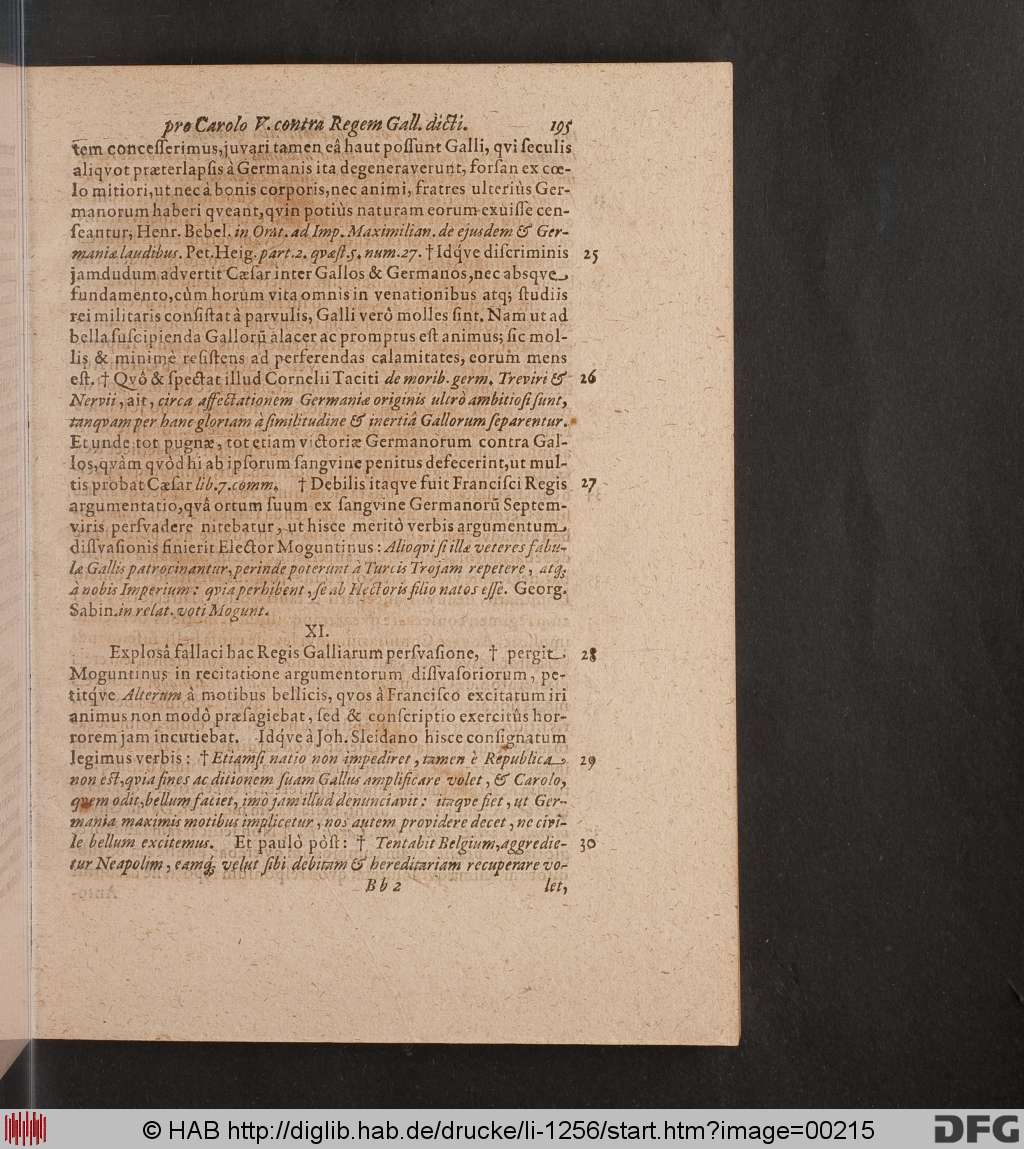 pro Carolo V. contra Regem Gall. dicti. 195
tem concesserimus, juvari tamen eâ haut possunt Galli, qvi seculis
aliqvot præterlapsis à Germanis ita degeneraverunt, forsan ex cœ-
lo mitiori, ut nec à bonis corporis, nec animi, fratres ulteriùs Ger-
manorum haberi qveant, qvin potiùs naturam eorum exuisse cen-
seantur, Henr. Bebel. in Orat. ad Imp. Maximilian. de ejusdem & Ger-
maniæ laudibus. Pet. Heig. part. 2. qvæst. 5. num. 27. † Idq́ve discriminis 25
jamdudum advertit Cæsar inter Gallos & Germanos, nec absqve
fundamento, cùm horum vita omnis in venationibus atq; studiis
rei militaris consistat à parvulis, Galli verò molles sint. Nam ut ad
bella suscipienda Gallorũ alacer ac promptus est animus; sic mol-
lis & minimè resistens ad perferendas calamitates, eorum mens
est. † Qvô & spectat illud Cornelii Taciti de morib. germ. Treviri & 26
Nervii, ait, circa affectationem Germaniæ originis ultrò ambitiosi sunt,
tanqvam per hanc gloriam à similitudine & inertiâ Gallorum separentur.
Et unde tot pugnæ, tot etiam victoriæ Germanorum contra Gal-
los, qvàm qvòd hi ab ipsorum sangvine penitus defecerint, ut mul-
tis probat Cæsar lib. 7. comm. † Debilis itaqve fuit Francisci Regis 27
argumentatio, qvâ ortum suum ex sangvine Germanorũ Septem-
viris persvadere nitebatur, ut hisce meritò verbis argumentum
dissvasionis finierit Elector Moguntinus: Alioqvi si illæ veteres fabu-
læ Gallis patrocinantur, perinde poterunt à Turcis Trojam repetere, atq;
à nobis Imperium: qvia perhibent, se ab Hectoris filio natos esse. Georg.
Sabin. in relat. voti Mogunt.
XI.
Explosâ fallaci hac Regis Galliarum persvasione, † pergit 28
Moguntinus in recitatione argumentorum dissvasoriorum, pe-
titq́ve Alterum à motibus bellicis, qvos à Francisco excitatum iri
animus non modò præsagiebat, sed & conscriptio exercitûs hor-
rorem jam incutiebat. Idq́ve à Joh. Sleidano hisce consignatum
legimus verbis: † Etiamsi natio non impediret, tamen è Republica 29
non est, qvia fines ac ditionem suam Gallus amplificare volet, & Carolo,
qvem odit, bellum faciet, imò jam illud denunciavit: itaqve fiet, ut Ger-
mania maximis motibus implicetur, nos autem providere decet, ne civi-
le bellum excitemus. Et paulò pòst: † Tentabit Belgium, aggredie- 30
tur Neapolim, eamq́; velut sibi debitam & hereditariam recuperare vo-
B b 2 let,
© HAB http://diglib.hab.de/drucke/li-1256/start.htm?image=00215
DFG